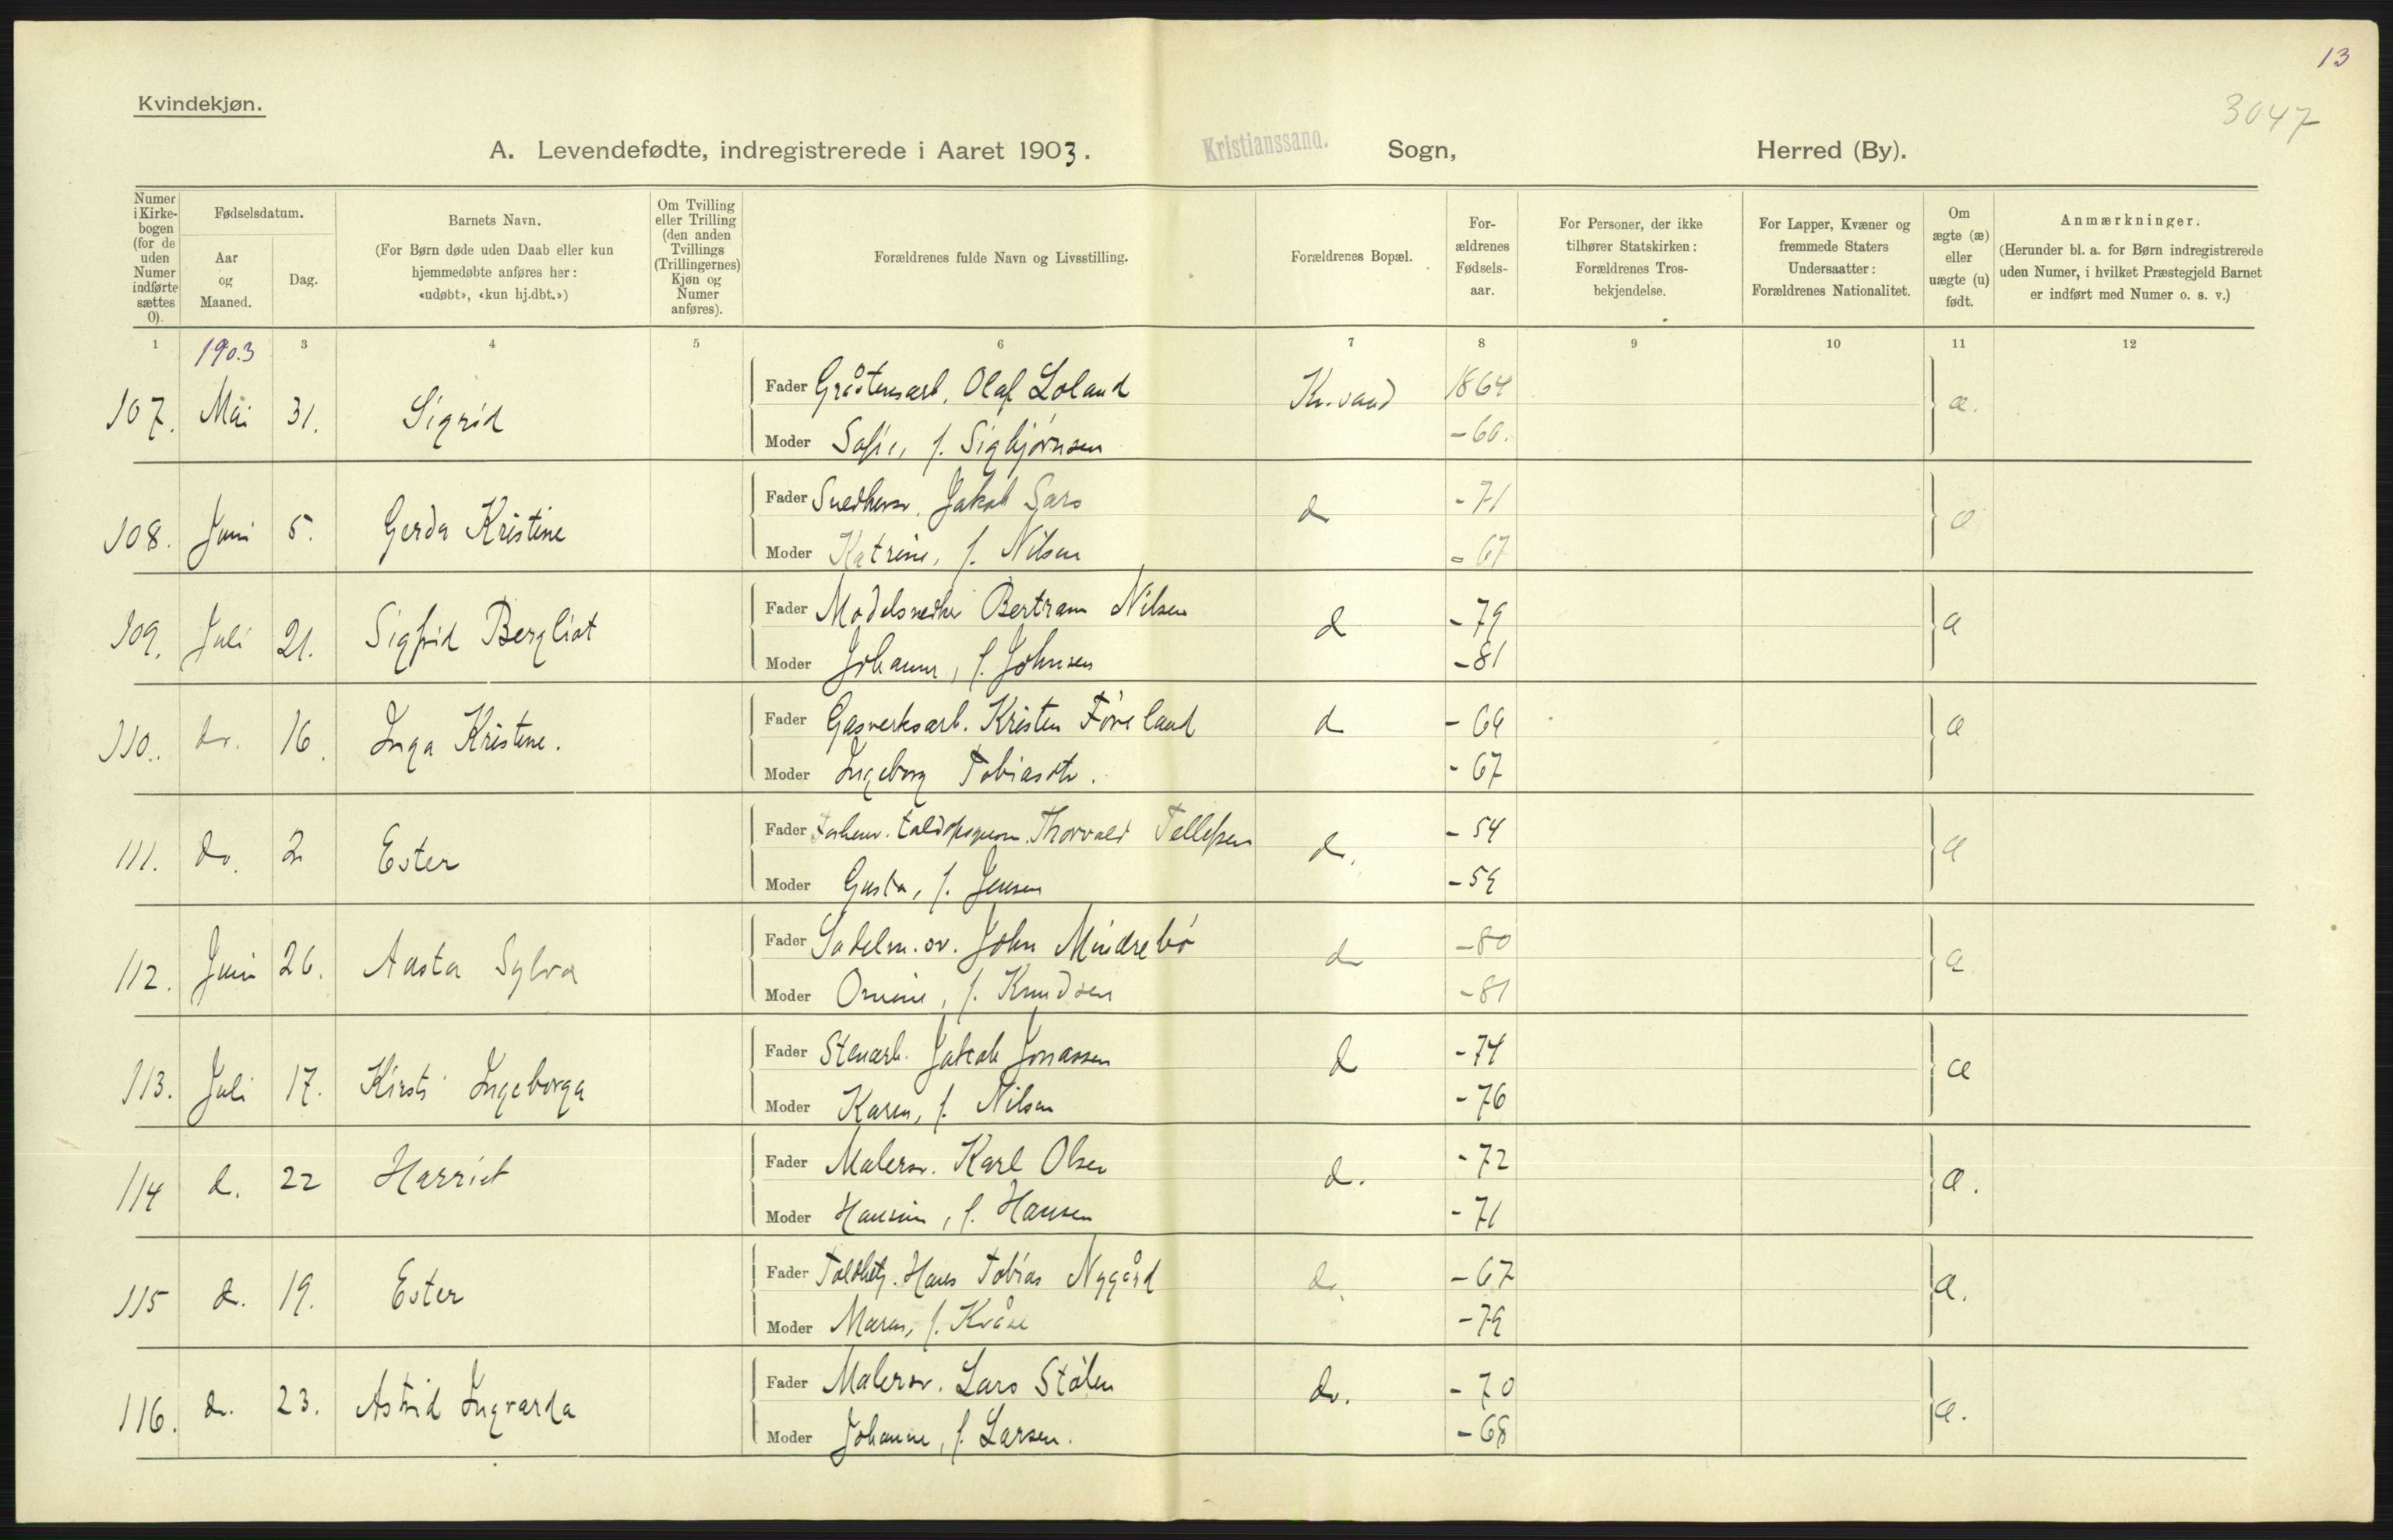 13
3047
Kvindekjøn.
A. Levendefødte, indregistrerede i Aaret 1903. Kristianssand. Sogn, Herred (By).
Numer i Kirkebogen (for de uden Numer indførte sættes 0).
Fødselsdatum.
Aar og Maaned.
Dag.
Barnets Navn.
(For Børn døde uden Daab eller kun hjemmedøbte anføres her: «udøbt», «kun hj.dbt.»)
Om Tvilling eller Trilling (den anden Tvillings (Trillingernes) Kjøn og Numer anføres).
Forældrenes fulde Navn og Livsstilling.
Forældrenes Bopæl.
For-ældrenes Fødsels-aar.
For Personer, der ikke tilhører Statskirken: Forældrenes Tros-bekjendelse.
For Lapper, Kvæner og fremmede Staters Undersaatter: Forældrenes Nationalitet.
Om ægte (æ) eller uægte (u) født.
Anmærkninger.
(Herunder bl. a. for Børn indregistrerede uden Numer, i hvilket Præstegjeld Barnet er indført med Numer o. s. v.)
1 1903 3 4 5 6 7 8 9 10 11 12
107. Mai 31. Sigrid Fader Gråstensarb. Olaf Loland Kr.sand 1864 æ.
Moder Sofie, f. Sigbjørnsen -66.
108. Juni 5. Gerda Kristine Fader Snedkersv. Jakob Sars d -71 æ
Moder Katrine, f. Nilsen -67
109. Juli 21. Sigfrid Bergliot Fader Modelsnedker Bertram Nilsen d -79 æ
Moder Johanne, f. Johnsen -81
110. do. 16. Inga Kristine. Fader Gasverksarb. Kristen Føreland d -69 æ
Moder Ingeborg Tobiasdtr. -67
111. do. 2 Ester Fader Thorvald Tellefsen d. -54 æ
Moder Gusta, f. Jensen -59
112. Juni 26. Aasta Sylva Fader Sadelm.sv. John Mindrebø d -80 æ
Moder Omine, f. Knudsen -81
113. Juli 17. Kirsti Ingeborga Fader Stenarb. Jakob Jonassen d -74 æ
Moder Karen, f. Nilsen -76
114 d. 22 Harriet Fader Malersv. Karl Olsen d. -72 æ.
Moder Hansine, f. Hansen -71
115 d. 19. Ester Fader Toldbetj. Hans Tobias Nygård do. -67 æ.
Moder Maren, f. Kvåse -79
116. d. 23. Astrid Ingvarda Fader Malersv. Lars Stålen do. -70 æ.
Moder Johanne, f. Larsen. -68